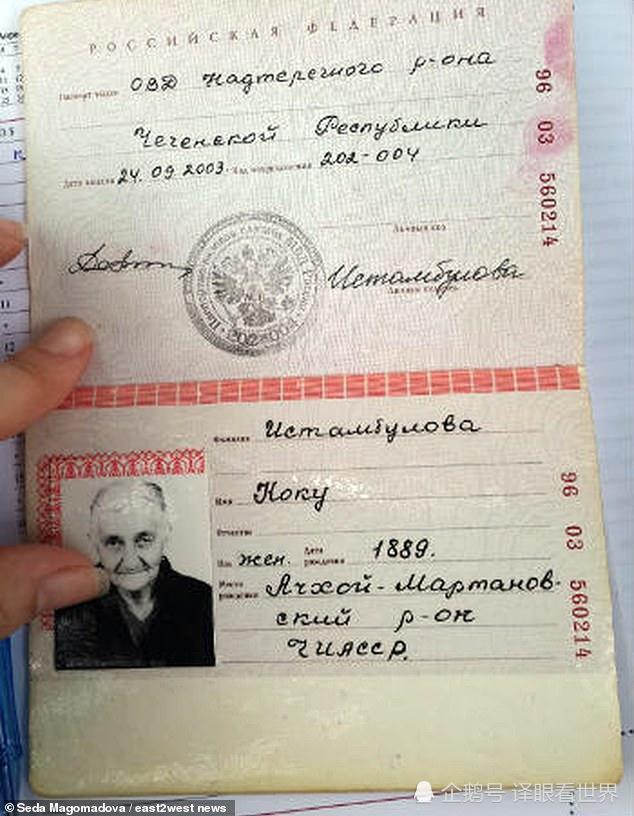 РОССИЙСКАЯ ФЕДЕРАЦИЯ
Паспорт выдан ОВД Надтеречного р-она
Чеченской Республики
Дата выдачи 24.09.2003. Код подразделения 202-004
Личный код
Истамбулова
Личная подпись
96 03 560214
Фамилия Истамбулова
Имя Коку
Отчество
Пол жен. Дата рождения 1889.
Место рождения Ачхой-Мартанов-
ский р-он
ЧИАССР.
96 03 560214
企鹅号 译眼看世界
© Seda Magomadova / east2west news